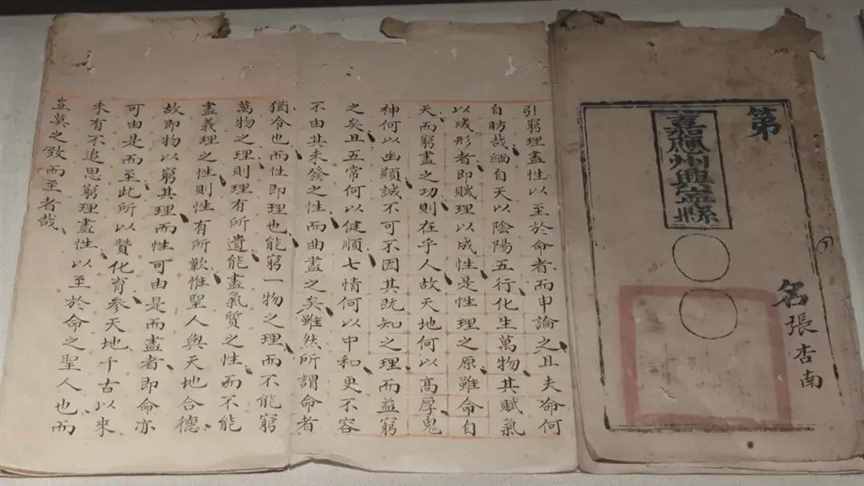 第
嘉應州興寧縣
名張杏南
引窮理盡性以至於命者而申論之且夫命何
自昉哉緬自天以陰陽五行化生萬物其賦氣
以成形者即賦理以成性是性理之原雖命自
天而窮盡之功則在乎人故天地何以高厚鬼
神何以幽顯誠不可不因其既知之理而益窮
之矣且五常何以健順七情何以中和更不容
不由其未發之性而曲盡之矣雖然所謂命者
猶令也而性即理也能窮一物之理而不能窮
萬物之理則理有所遺能盡氣質之性而不能
盡義理之性則性有所歉惟聖人與天地合德
故即物以窮其理而性可由是而盡者即命亦
可由是而至此所以贊化育參天地千古以來
未有不追思窮理盡性以至於命之聖人也而
豈莫之致而至者哉